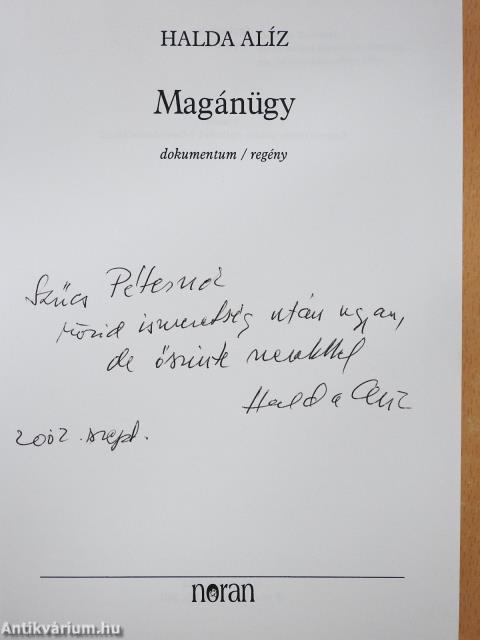 HALDA ALÍZ
Magánügy
dokumentum / regény
Szűcs Péternek
rövid ismeretség után ugyan,
de őszinte
Halda Alíz
2002. szept.
noran
Antikvárium.hu